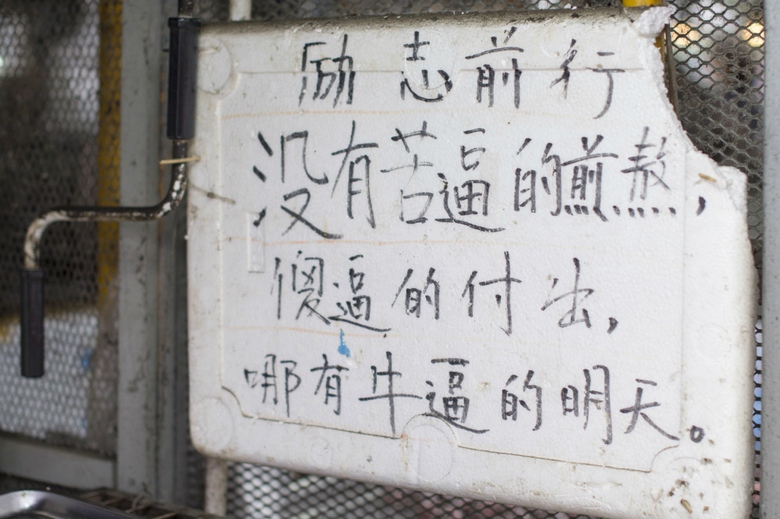 励志前行
没有苦逼的煎熬,
傻逼的付出,
哪有牛逼的明天。